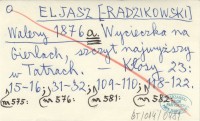 a
ELJASZ [RADZIKOWSKI]
Walery 1876 a. Wycieczka na
Gierlach, szczyt najwyższy
w Tatrach. - Kłosy, 23:
15-16, 31-32, 109-110, 118-122.
nr 575. nr 576. nr 581. nr 582.